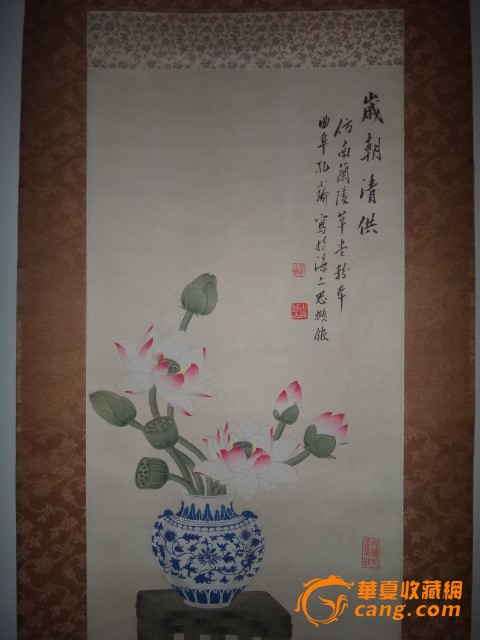 歲朝清供
仿南蘭陵草粉本
曲阜孔小瑜寫於海上思館
華夏收藏網
cang.com